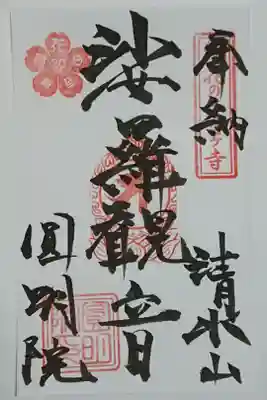 奉納
清水山
娑羅観音
圓明院